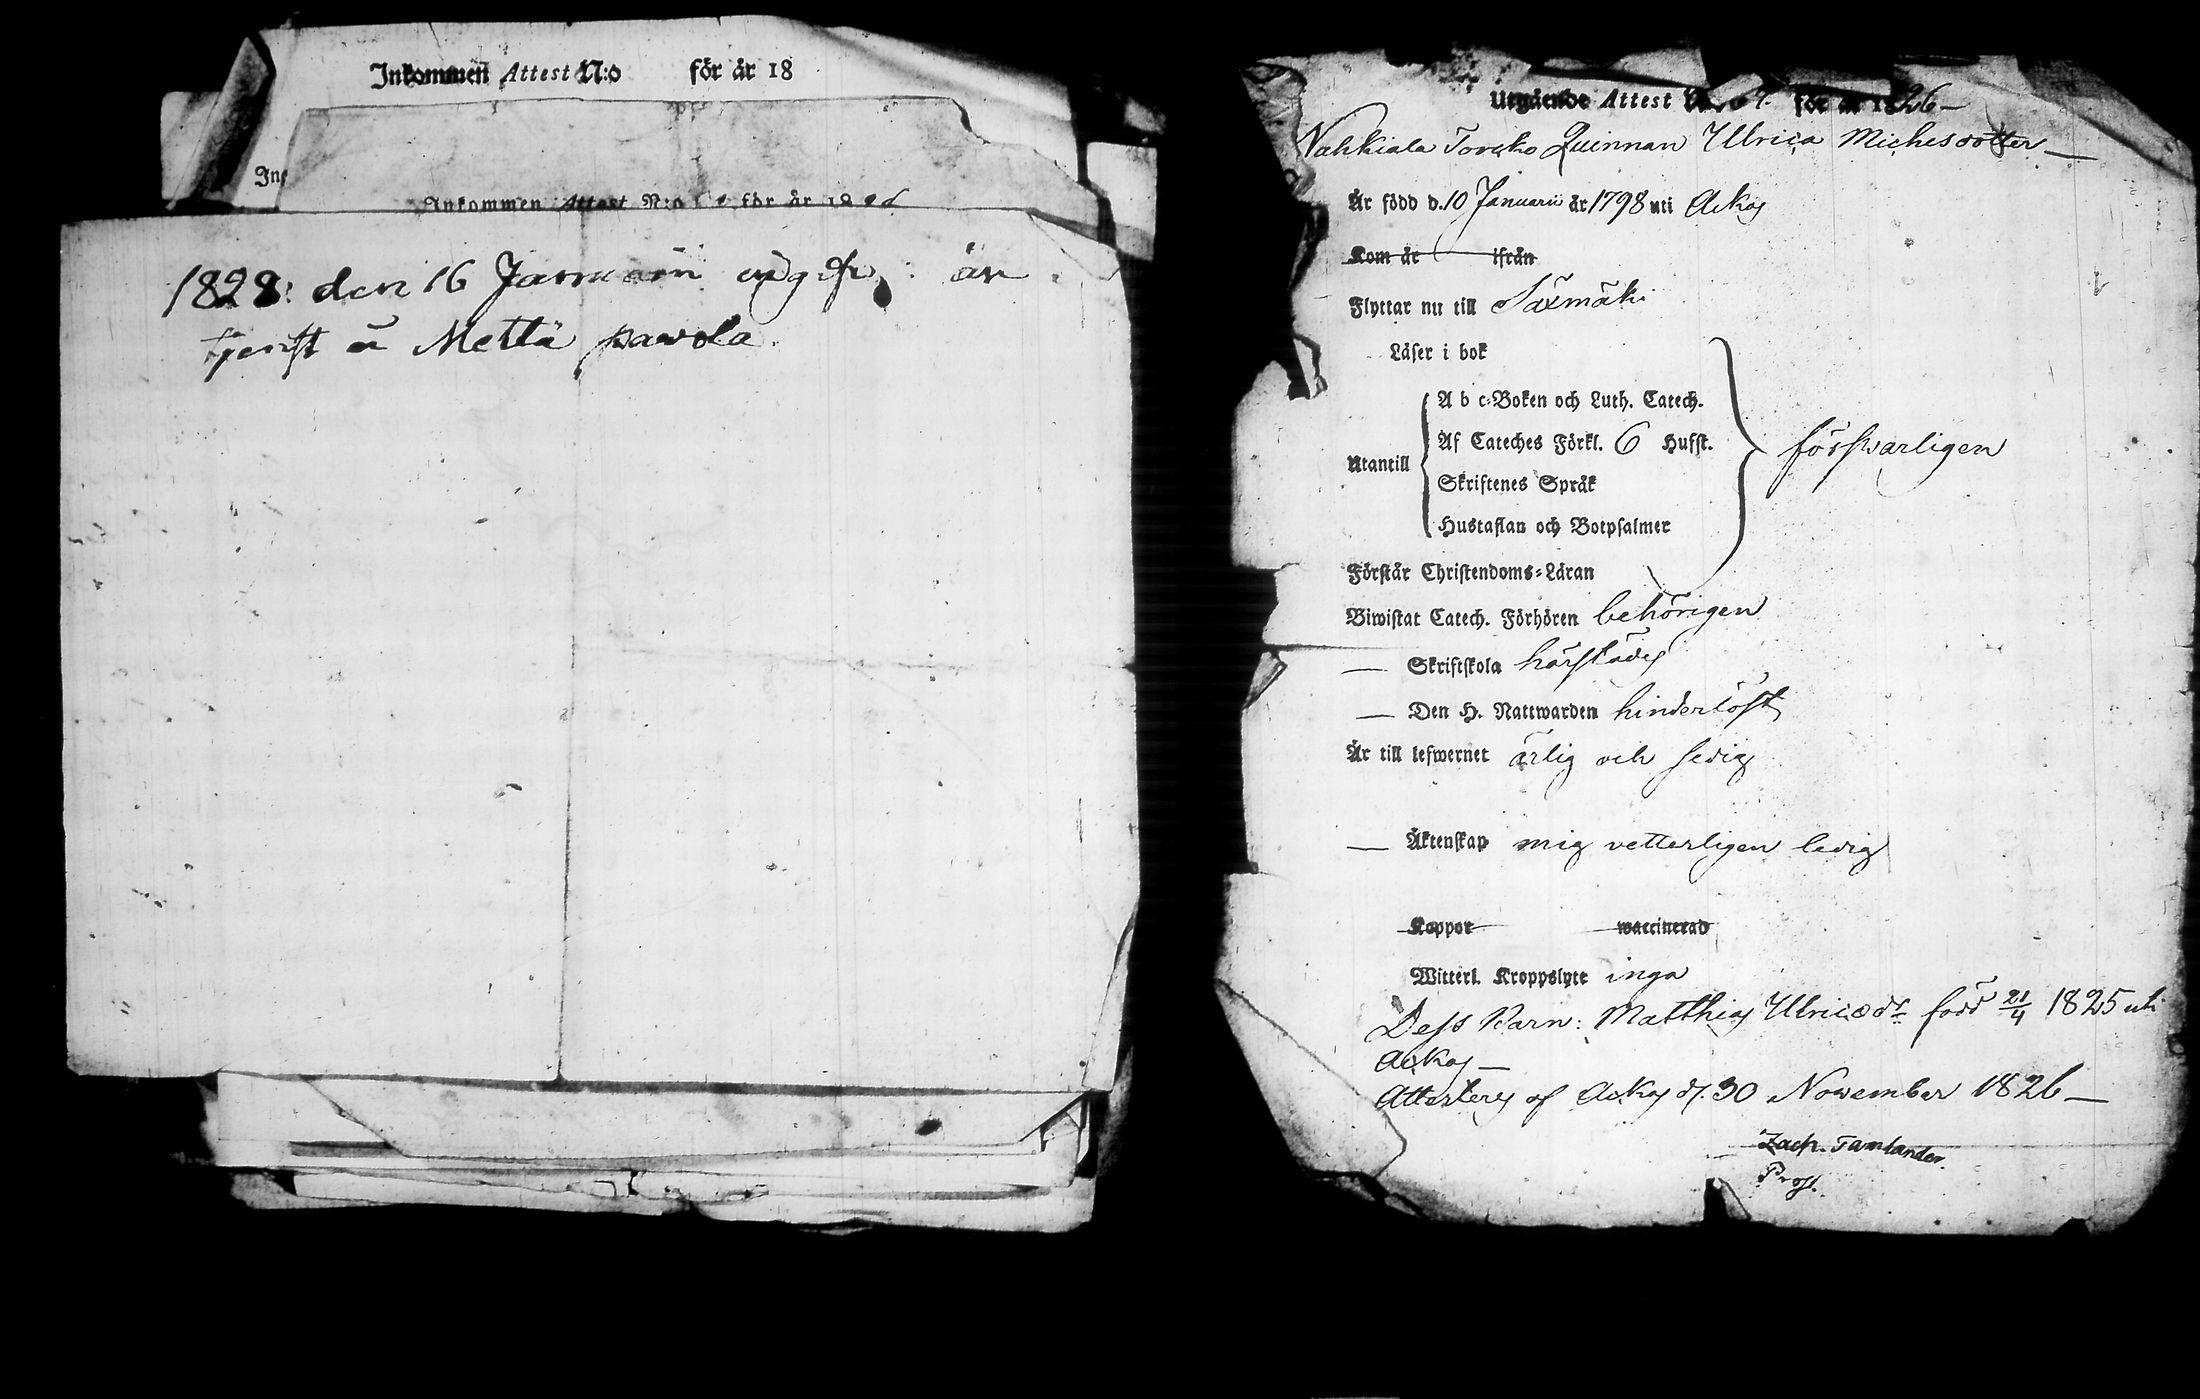 Inkommen Attest N:o för år 18
Inkommen Attest N:o för år 18
1828: den 16 Januari är
tjenst å Mettä pavola.
Utgående Attest för år 1826 –
Nahkiala Torcko Quinnan Ulrica Michelsdotter —
Är född d. 10 Januarii år 1798 uti Ackas
Kom år ifrån
Flyttar nu till Säxmäki
Läser i bok
A b c-Boken och Luth. Catech.
Af Cateches Förkl. 6 Hufst.
Utantill
försvarligen
Skriftenes Språk
Hustaflan och Botpsalmer
Förstår Christendoms-Läran
Biwistat Catech. Förhören behörigen
— Skriftskola härstädes
— Den H. Nattwarden hinderlöst
Är till lefwernet ärlig och sedig
— Äktenskap mig vetterligen ledig
Koppor waccinerad
Witterl. Kroppslyte inga
Dess Barn: Matthias Ulricædr född 21/4 1825 uti
Ackas —
Attesteras af Ackas d. 30 November 1826 —
Zach. Tamlander.
Prost.